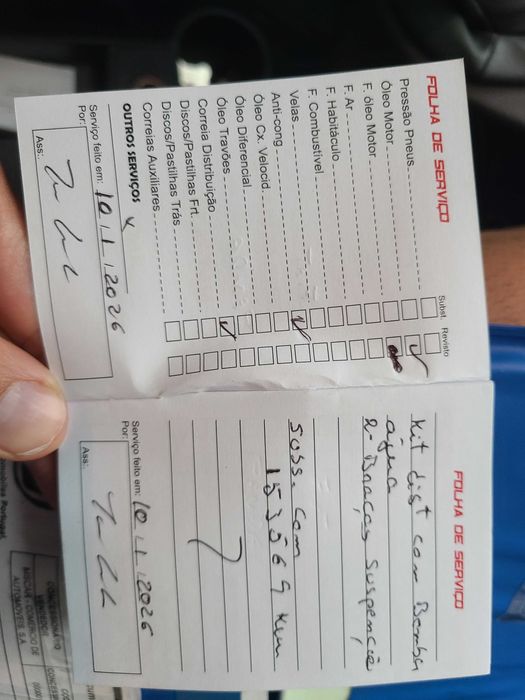 FOLHA DE SERVIÇO
Subst. Revisto
Pressão Pneus
Óleo Motor
F. óleo Motor
F. Ar
F. Habitáculo
F. Combustível
Velas
Anti-cong.
Óleo Cx. Velocid.
Óleo Diferencial
Óleo Travões
Correia Distribuição
Discos/Pastilhas Frt.
Discos/Pastilhas Trás
Correias Auxiliares
OUTROS SERVIÇOS
Serviço feito em: 10/1/2026
Por:
Ass:
FOLHA DE SERVIÇO
Kit dist com Bomba
água
2- Braços suspenção
subs. com
153569 km
Serviço feito em: 10/1/2026
Por:
Ass:
Portugal
CONCESSIONÁRIO
VENDEDOR
COMERCIO DE
AUTOMOVEIS, S.A.